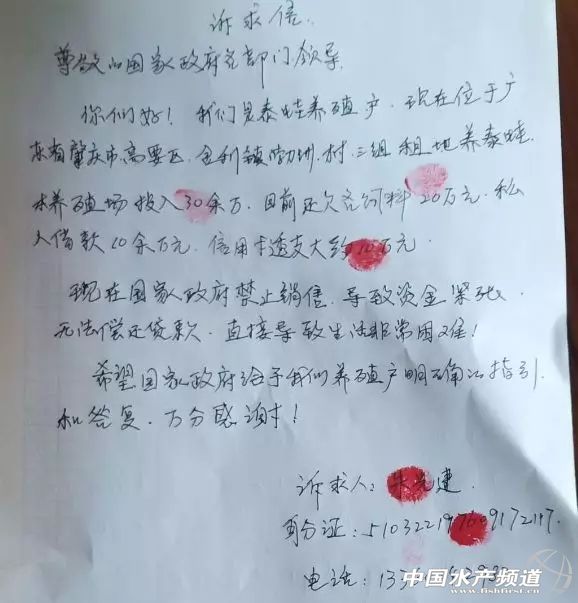 诉求信.
尊敬的国家政府各部门领导.
你们好！我们是泰蛙养殖户.现在位于广
东省肇庆市高要区.金利镇 村.三组租地养泰蛙.
本养殖场投入30余万.目前还欠各饲料20万元.私
人借款10余万元.信用卡透支大约10万元.
现在国家政府禁止销售.导致资金紧缺.
无法偿还贷款.直接导致生活非常困难！
希望国家政府给予我们养殖户明确的指引
和答复.万分感谢！
诉求人：朱 建.
身份证：
电话：
中国水产频道
www.fishfirst.cn